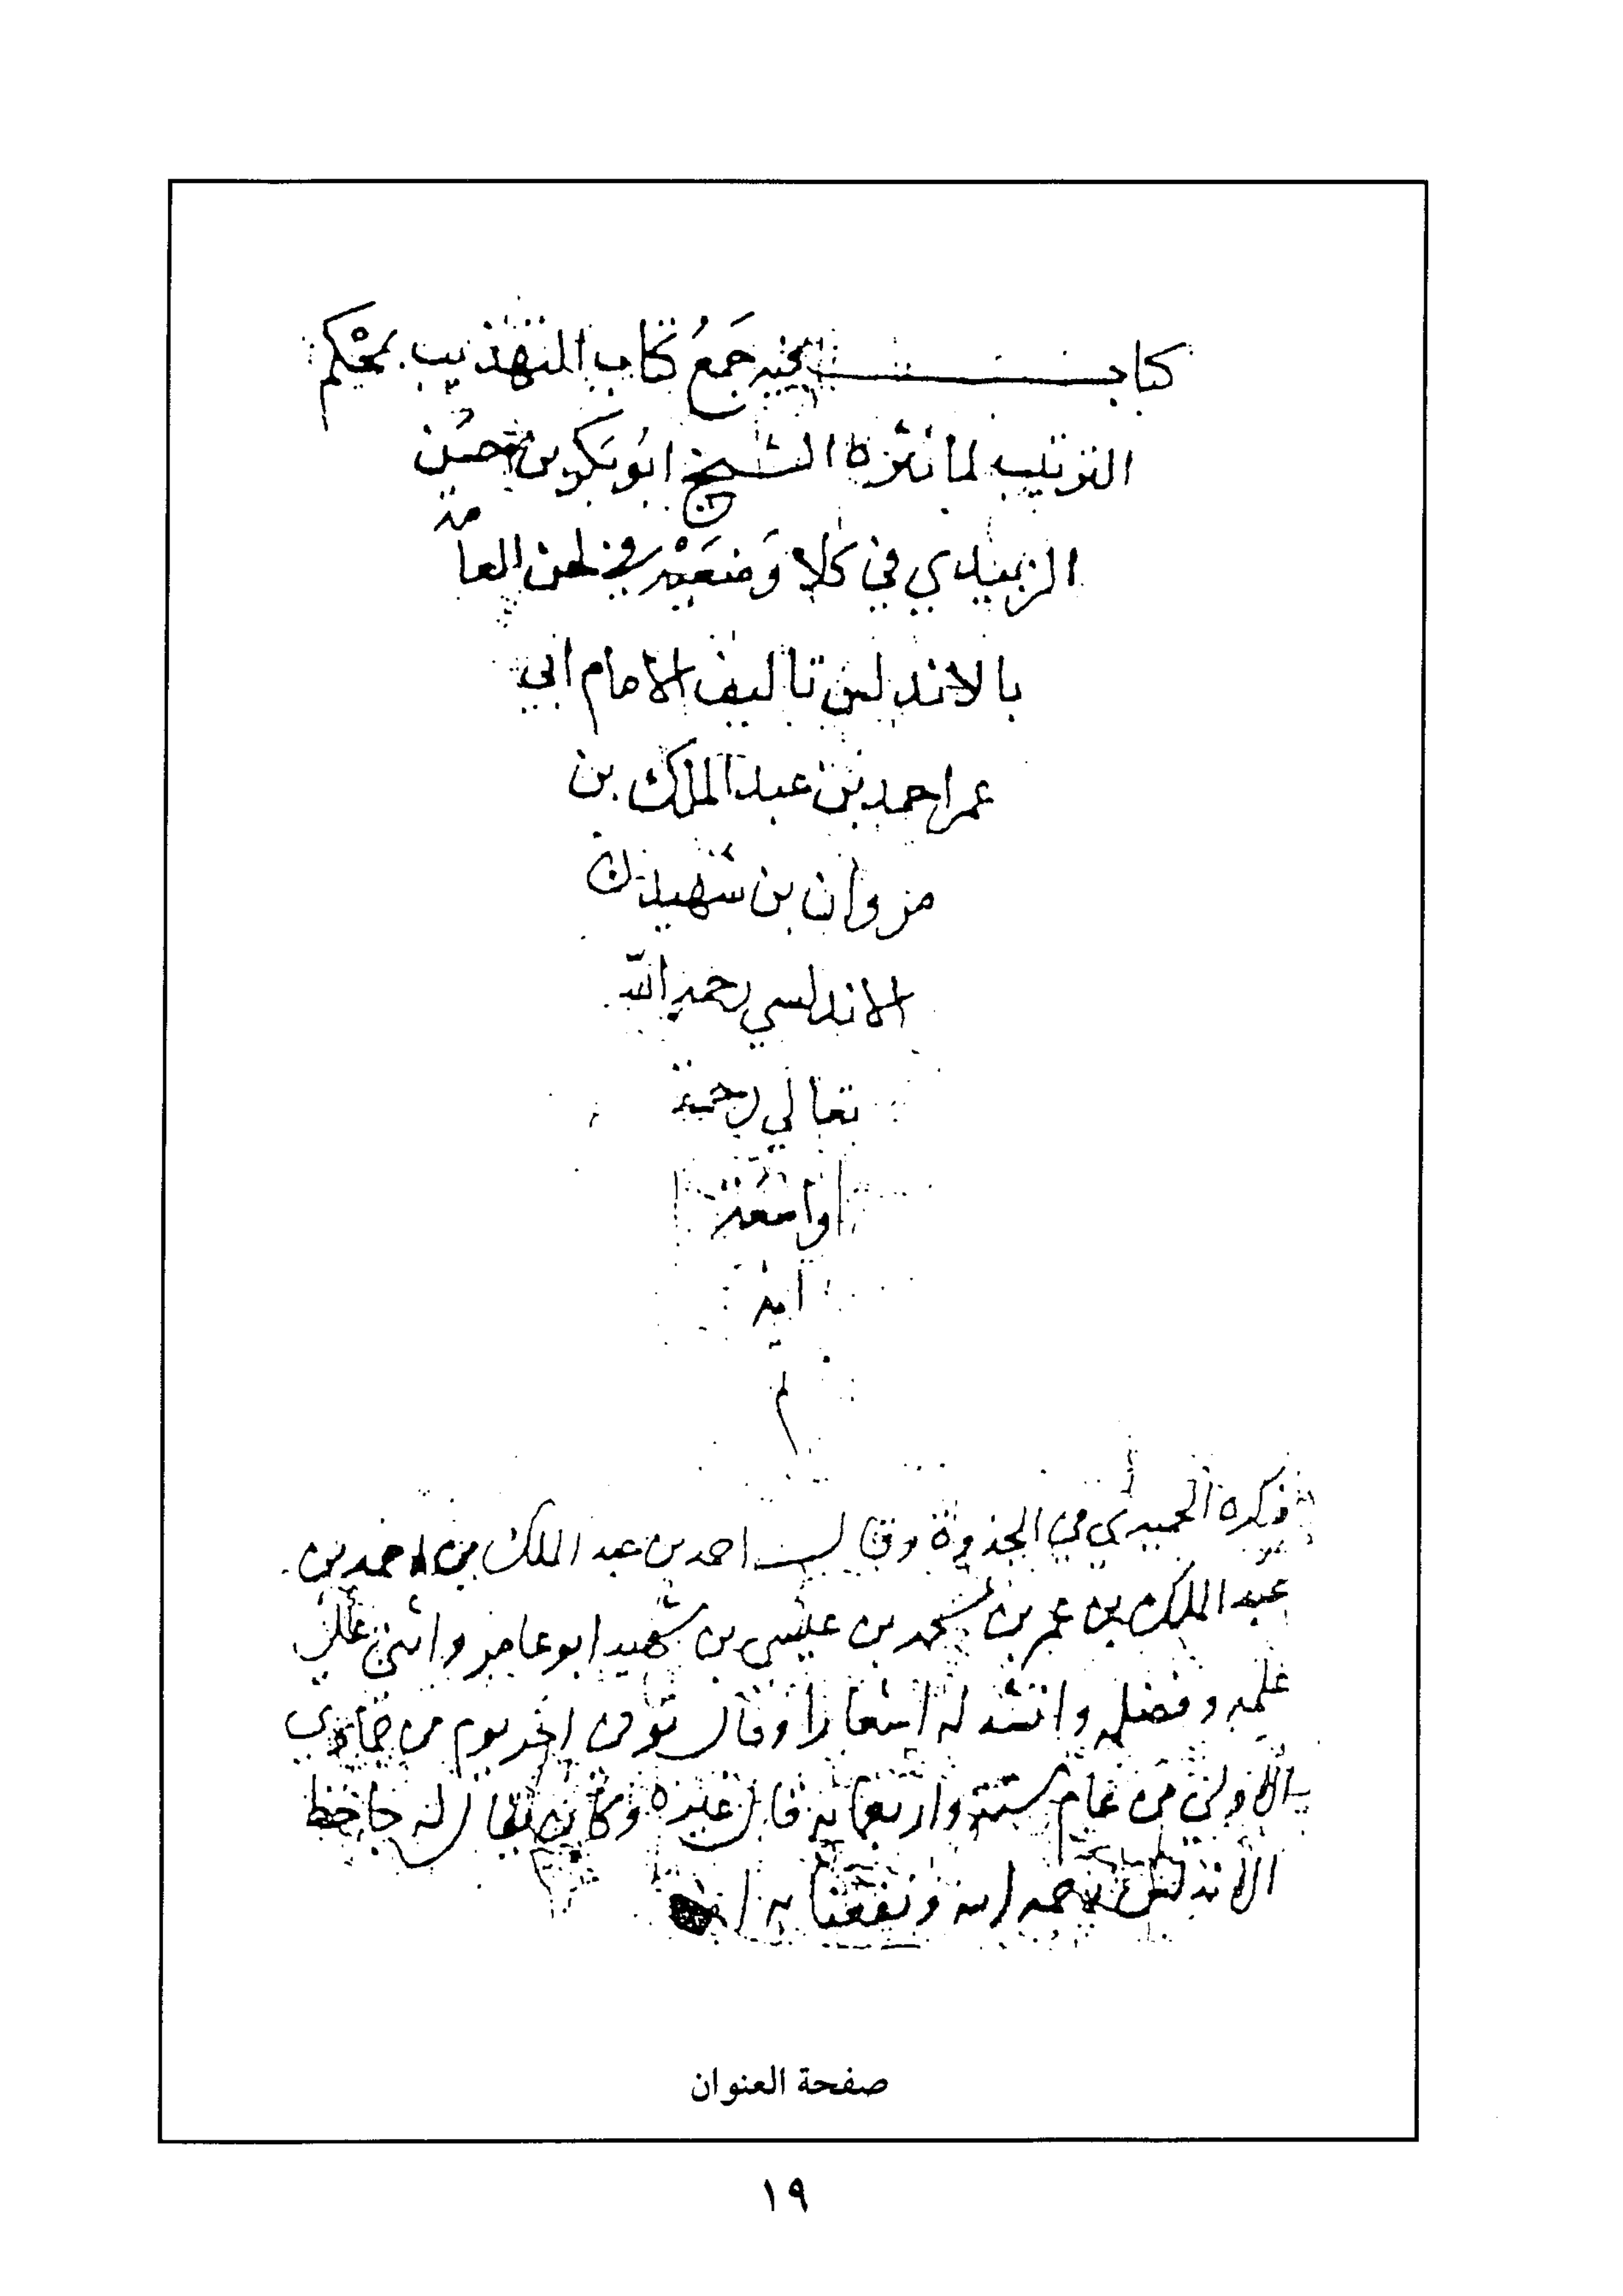 كتاب فيه جَمعُ كتاب التهذيب بمحْكم
الترتيب لما نثره الشيخ ابو بكر بن حسن
الزبيدي في كلا وَضعَيْه في لحن العامة
بالاندلس تاليف الامام ابي
عمر احمد بن عبد الملك بن
مروان بن شهيد
الاندلسي رحمه الله
تعالي رحمة
واسعة
امين
ذكره الحميدي في الجذوة وقال احمد بن عبد الملك بن احمد بن
عبد الملك بن عمر بن محمد بن عيسى بن شهيد ابو عامر واثنى على
علمه وفضله وانشد له اشعارا وقال توفى اخر يوم من جمادى
الاولى من عام ستة واربعمائه قال غيره وكان يقال له جاحظ
الاندلس رحمه الله ونفعنا به
صفحة العنوان
١٩